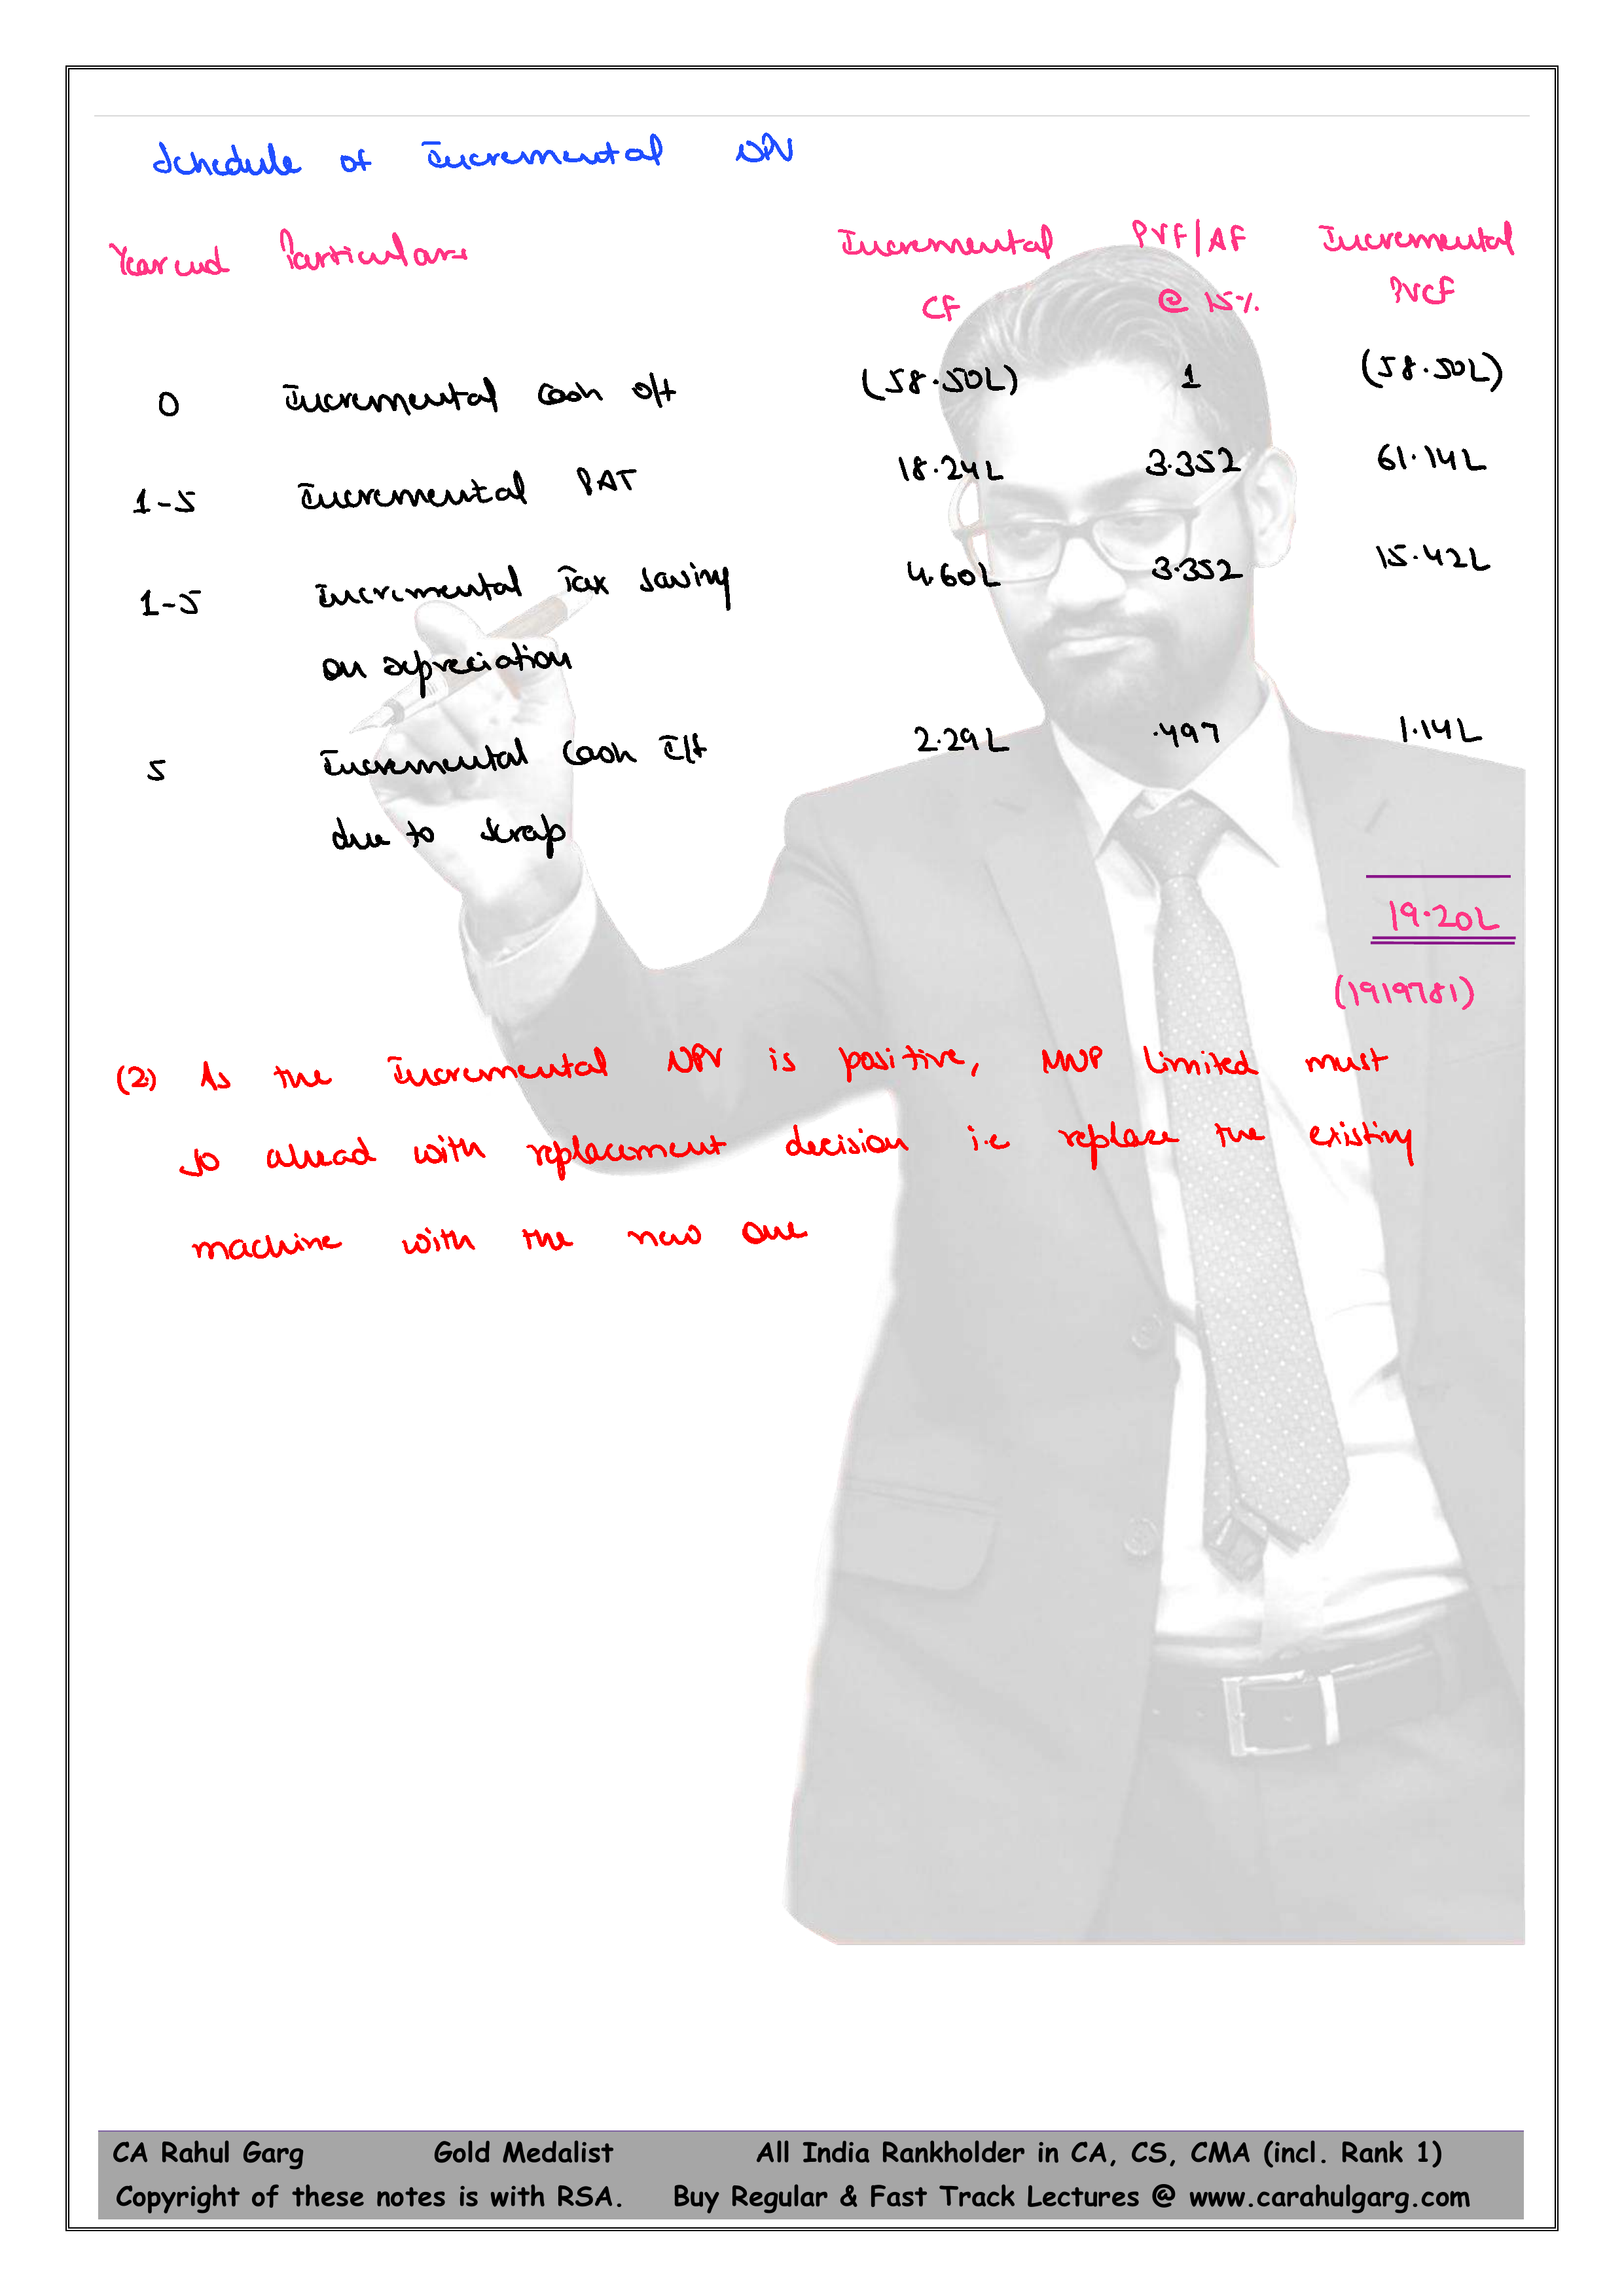 Schedule of Incremental NPV
Year end Particulars Incremental PVF/AF Incremental
CF @ 15% PVCF
0 Incremental Cash o/f (58.50L) 1 (58.50L)
1-5 Incremental PAT 18.24L 3.352 61.14L
1-5 Incremental Tax Saving 4.60L 3.352 15.42L
on depreciation
5 Incremental Cash I/f 2.29L .497 1.14L
due to scrap
19.20L
(1919781)
(2) As the Incremental NPV is positive, MNP Limited must
go ahead with replacement decision i.e replace the existing
machine with the new one
CA Rahul Garg Gold Medalist All India Rankholder in CA, CS, CMA (incl. Rank 1)
Copyright of these notes is with RSA. Buy Regular & Fast Track Lectures @ www.carahulgarg.com